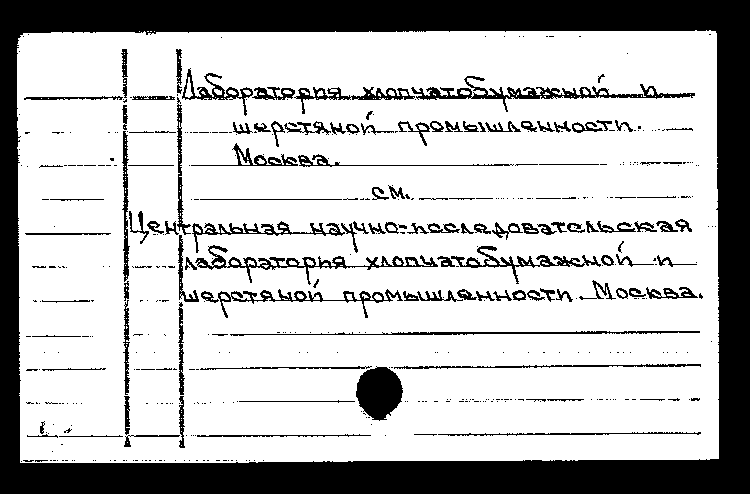 Лаборатория хлопчатобумажной и
шерстяной промышленности.
Москва.
см.
Центральная научно-последовательская
лаборатория хлопчатобумажной и
шерстяной промышленности. Москва.